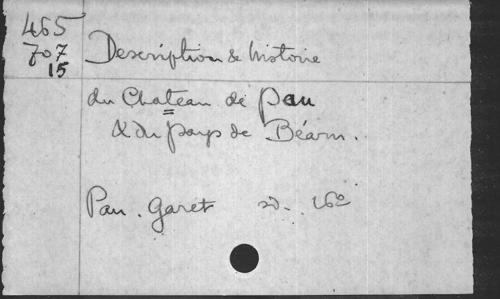 465
707
15
Description & histoire
du Chateau de Pau
& du pays de Béarn.
Pau. Garet sd. 16°